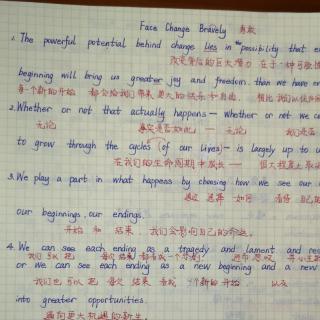 Face Change Bravely 勇敢
1. The powerful potential behind change lies in "possibility that
改变背后的巨大潜力 在于一种可能性
beginning will bring us greater joy and freedom. than we have
每一个新的开始 都会给我们带来更大的快乐和自由.
2. Whether or not that actually happens — whether or not we
无论 事实是否如此 — 无论 我们是否
to grow through the cycles (of our lives) — is largely up to
在我们的生命周期中成长 —
3. We play a part in what happens by choosing how we see our
通过 选择 如何 看待
our beginnings, our endings.
开始 和 结束, 我们会影响自己的命运。
4. We can see each ending as a tragedy and lament and
我们可以把 每次结束
or we can see each ending as a new beginning and a new
我们也可以把 每次 结束 看成 个新的开始. 以及
into greater opportunities.
通向更大机遇的新生.